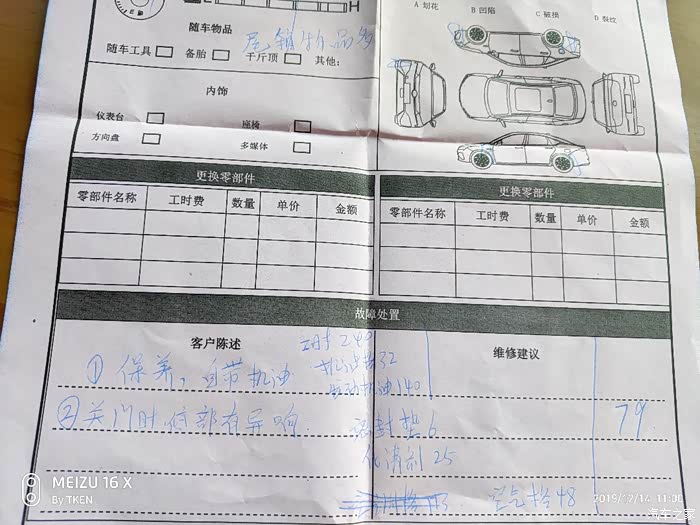 H
A 划花 B 凹陷 C 碰损 D 裂纹
随车物品
随车工具 备胎 千斤顶 其他:
内饰
仪表台 座椅
方向盘 多媒体
更换零部件 更换零部件
零部件名称 工时费 数量 单价 金额 零部件名称 工时费 数量 单价 金额
故障处置
客户陈述 维修建议
工时 240
① 保养,自带机油 机油格32
140
② 关门时后部有异响. 密封垫 6 79.
清洗剂 25
空气格 48
MEIZU 16 X
By TKEN
2019/12/14 11:00
汽车之家